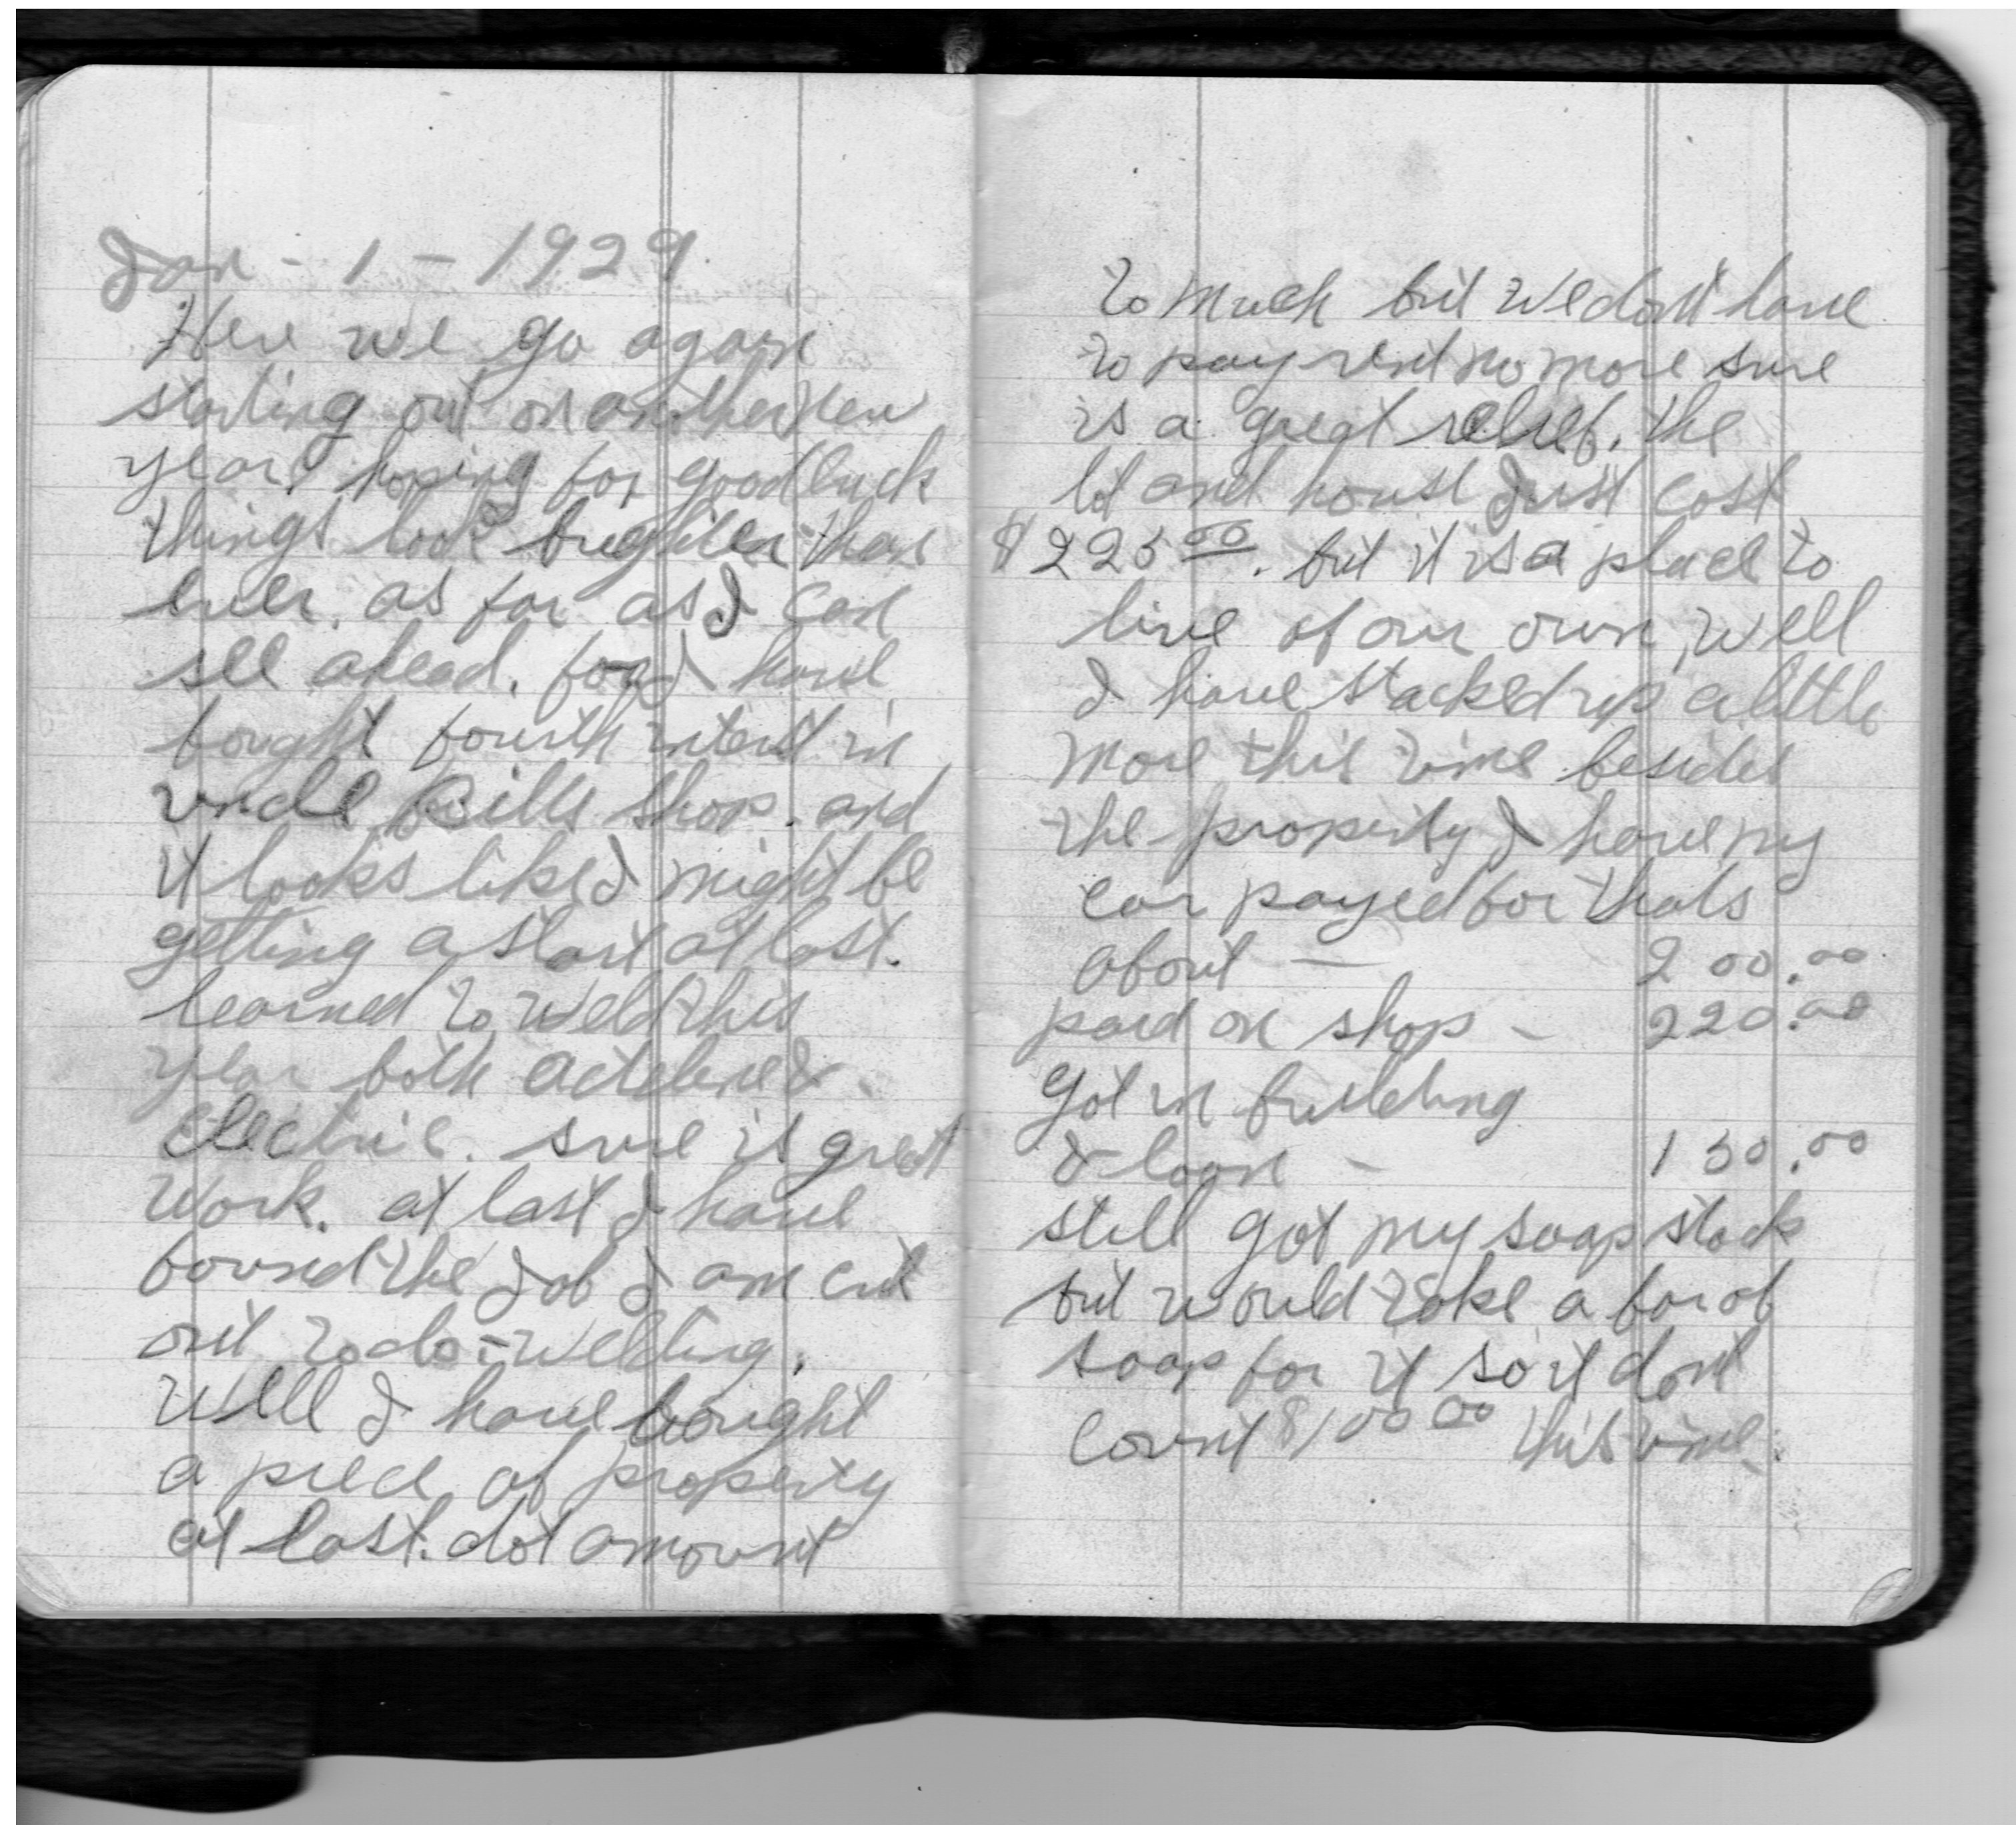 Jan - 1 - 1929
Here we go again
starting out on another new
year, hoping for good luck
things look brighter than
ever. as far as I can
see ahead. for I have
bought fourth interst in
uncle Bills shop. and
it looks like I might be
getting a start at last.
learned to weld this
year both acteline &
Electric. sure is great
work. at last I have
found the Job I am cut
out to do - welding.
Well I have bought
a piece of property
at last. dot amount
to much but we dont have
to pay rent no more sure
is a great relief. the
lot and house Just cost
$225 00. but it is a place to
live of our own, well
I have stacked up a little
more this time besides
the property I have my
car payed for thats
about — 200.00
paid on shop - 220.00
got in building
& loan - 130.00
still got my soap stock
but would take a bar of
soap for it so it dont
count $100 00 this time.